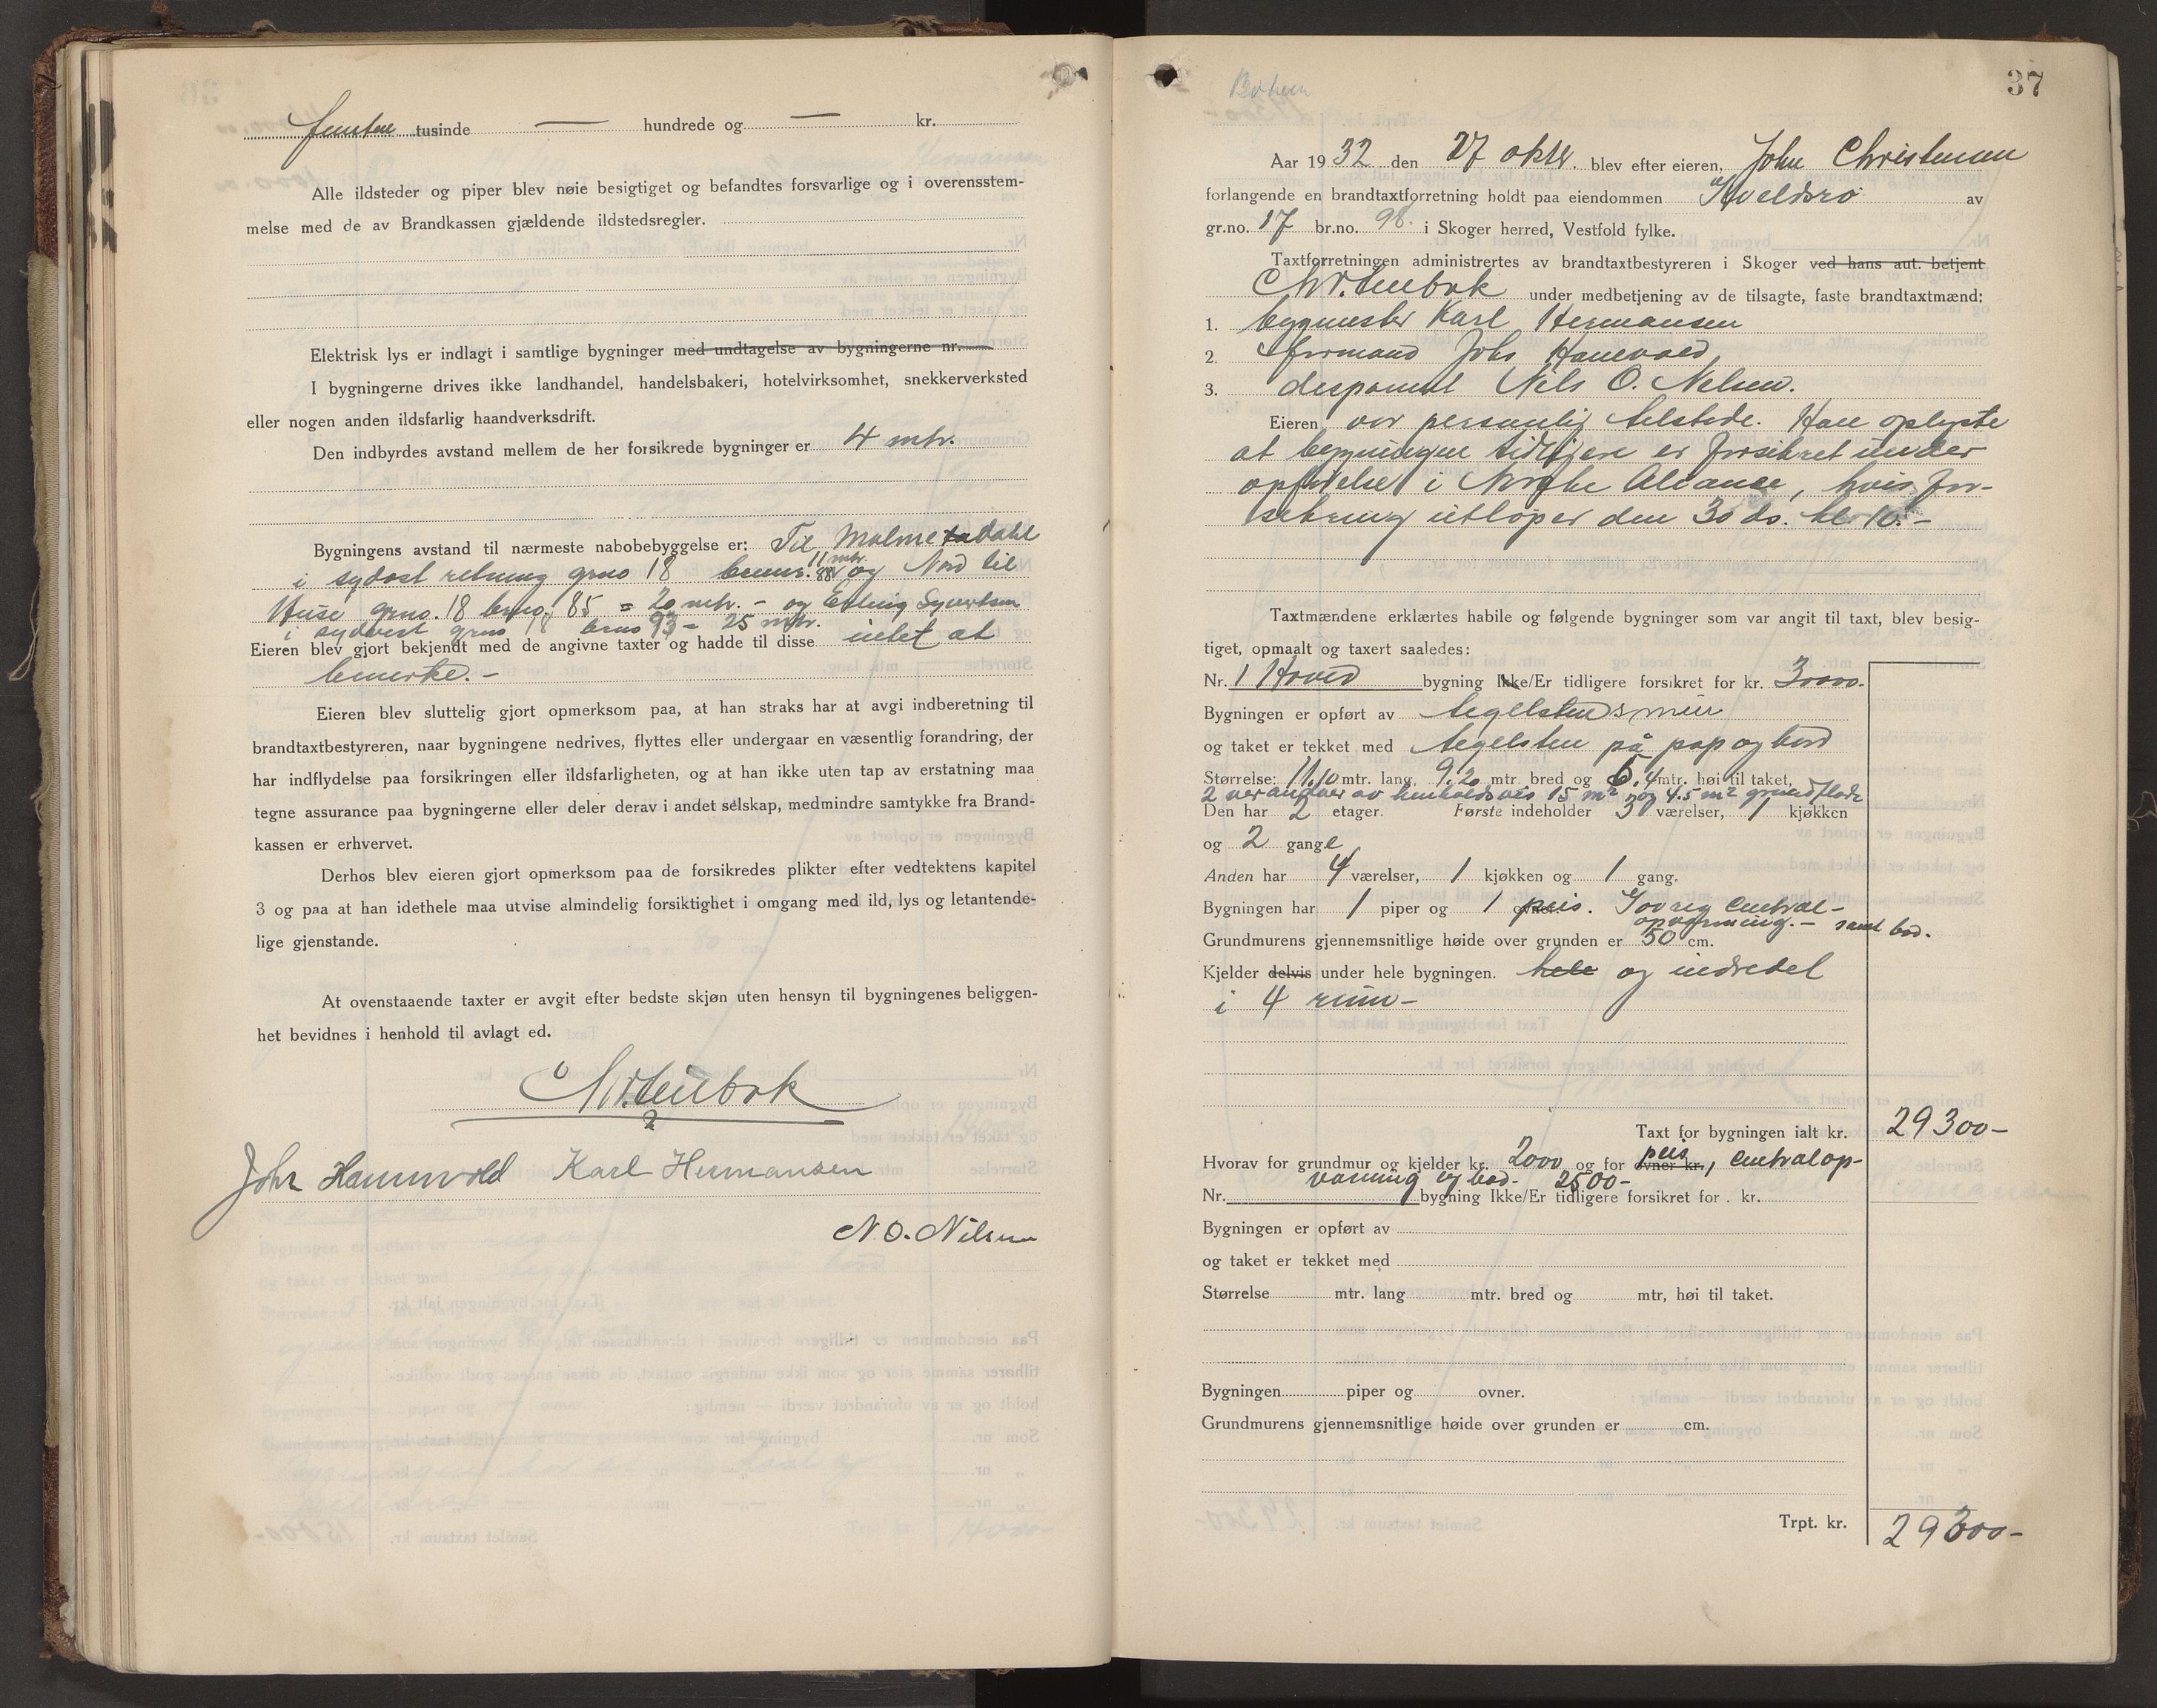 femten tusinde — hundrede og — kr.
Alle ildsteder og piper blev nøie besigtiget og befandtes forsvarlige og i overensstem-
melse med de av Brandkassen gjældende ildstedsregler.
Elektrisk lys er indlagt i samtlige bygninger med undtagelse av bygningerne nr.
I bygningerne drives ikke landhandel, handelsbakeri, hotelvirksomhet, snekkerverksted
eller nogen anden ildsfarlig haandverksdrift.
Den indbyrdes avstand mellem de her forsikrede bygninger er 4 mtr.
Bygningens avstand til nærmeste nabobebyggelse er: Til Dahl
11 mtr.
i sydost retning grno 18 brnr. 88 og Nord til
Huse grno. 18 brno. 85 = 20 mtr. - og Erling Syvertsen
i sydvest grno 18 brno 93 - 25 mtr.
Eieren blev gjort bekjendt med de angivne taxter og hadde til disse intet at
bemerke. -
Eieren blev sluttelig gjort opmerksom paa, at han straks har at avgi indberetning til
brandtaxtbestyreren, naar bygningene nedrives, flyttes eller undergaar en væsentlig forandring, der
har indflydelse paa forsikringen eller ildsfarligheten, og at han ikke uten tap av erstatning maa
tegne assurance paa bygningerne eller deler derav i andet selskap, medmindre samtykke fra Brand-
kassen er erhvervet.
Derhos blev eieren gjort opmerksom paa de forsikredes plikter efter vedtektens kapitel
3 og paa at han idethele maa utvise almindelig forsiktighet i omgang med ild, lys og letantende-
lige gjenstande.
At ovenstaaende taxter er avgit efter bedste skjøn uten hensyn til bygningenes beliggen-
het bevidnes i henhold til avlagt ed.
Chr. Teubok
Johs Hanevold Karl Hermansen
N. O. Nilsen
37
Aar 1932 den 27 oktbr. blev efter eieren, John Christensen
forlangende en brandtaxtforretning holdt paa eiendommen Kveldsro av
gr.no. 17 br.no. 98. i Skoger herred, Vestfold fylke.
Taxtforretningen administrertes av brandtaxtbestyreren i Skoger ved hans aut. betjent
Chr. Teubok under medbetjening av de tilsagte, faste brandtaxtmænd:
1. bygmester Karl Hermansen
2. formand Johs Hanevold
3. disponent Nils O. Nilsen.
Eieren var personlig tilstede. Han oplyste
at bygningen tidligere er forsikret under
opførelse i Norske Aliance, hvis for-
sikring utløper den 30 ds. kl 10. -
Taxtmændene erklærtes habile og følgende bygninger som var angit til taxt, blev besig-
tiget, opmaalt og taxert saaledes:
Nr. 1 Hoved bygning Ikke/Er tidligere forsikret for kr. 30000.-
Bygningen er opført av tegelstensmur
og taket er tekket med tegelsten på pap og bord
Størrelse: 11.10 mtr. lang, 9.20 mtr. bred og 6.4 mtr. høi til taket,
2 verandaer av henholdsvis 15 m² og 4.5 m² grundflade
Den har 2 etager. Første indeholder 3 værelser, 1 kjøkken
og 2 gange
Anden har 4 værelser, 1 kjøkken og 1 gang.
Bygningen har 1 piper og 1 peis. Iøvrig central-
opvarming. - samt bad.
Grundmurens gjennemsnitlige høide over grunden er 50 cm.
Kjelder delvis under hele bygningen. hele og indredet
i 4 rum -
Taxt for bygningen ialt kr. 29300-
Hvorav for grundmur og kjelder kr. 2000 og for ovner kr. peis, centralop-
varming og bad - 2500-
Nr. bygning Ikke/Er tidligere forsikret for . kr.
Bygningen er opført av
og taket er tekket med
Størrelse mtr. lang mtr. bred og mtr, høi til taket.
Bygningen piper og ovner.
Grundmurens gjennemsnitlige høide over grunden er cm.
Trpt. kr. 29300-